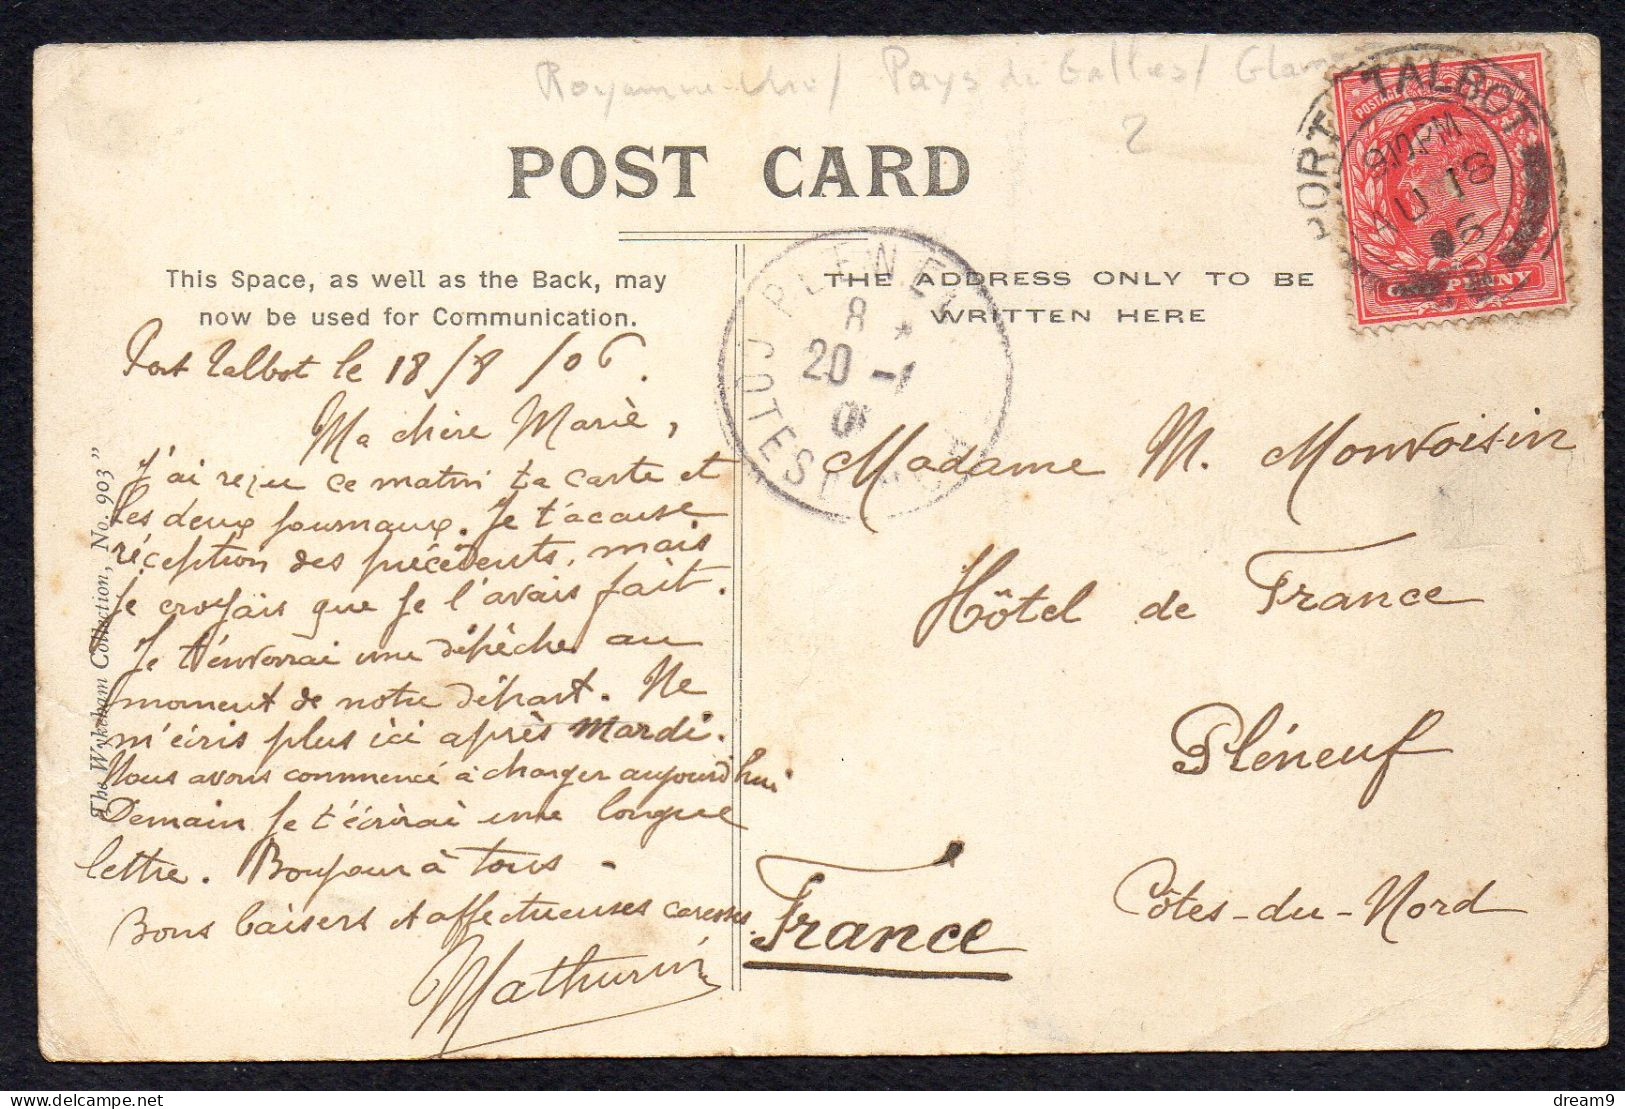 Royaume-Uni / Pays de Galles / Glam
2
POST CARD
This Space, as well as the Back, may
now be used for Communication.
THE ADDRESS ONLY TO BE
WRITTEN HERE
PORT TALBOT
9.10 PM
AU 18
06
POSTAGE
ONE PENNY
PLENEUF
8 *
20 -
COTES DU
The Wykeham Collection, No. 903"
Port Talbot le 18/8/06.
Ma chère Marie,
J'ai reçu ce matin ta carte et
les deux journaux. Je t'accuse
réception des précédents, mais
je croyais que je l'avais fait.
Je t'enverrai une dépêche au
moment de notre départ. Ne
m'écris plus ici après Mardi.
Nous avons commencé à charger aujourd'hui
Demain je t'écrirai une longue
lettre. Bonjour à tous -
Bons baisers et affectueuses caresses.
Mathurin
Madame M. Monvoisin
Hôtel de France
Pléneuf
Côtes-du-Nord
France
dream9